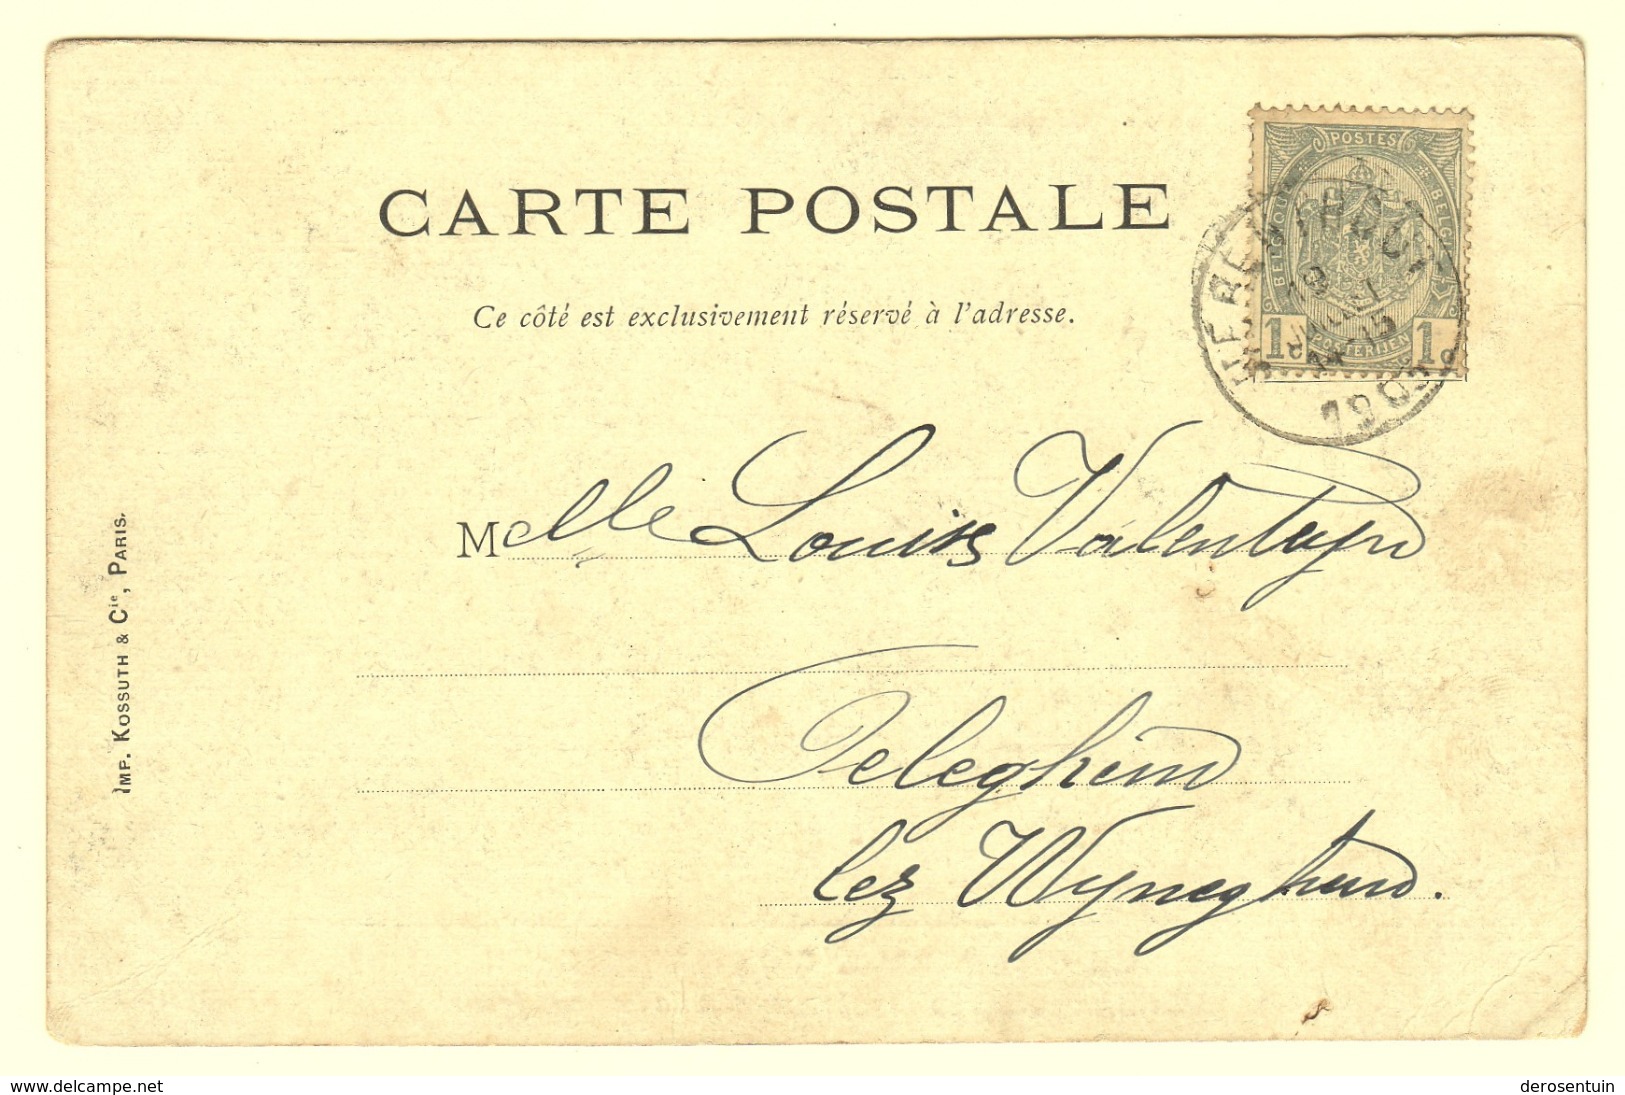 CARTE POSTALE
Ce côté est exclusivement réservé à l'adresse.
POSTES
BELGIQUE
BELGIË
1c
POSTERIJEN
1c
HERENTHOUT
14-15
Melle Louise Valentyn
Oeleghem
lez Wyneghem.
IMP. KOSSUTH & Cie, PARIS.
www.delcampe.net
derosentuin